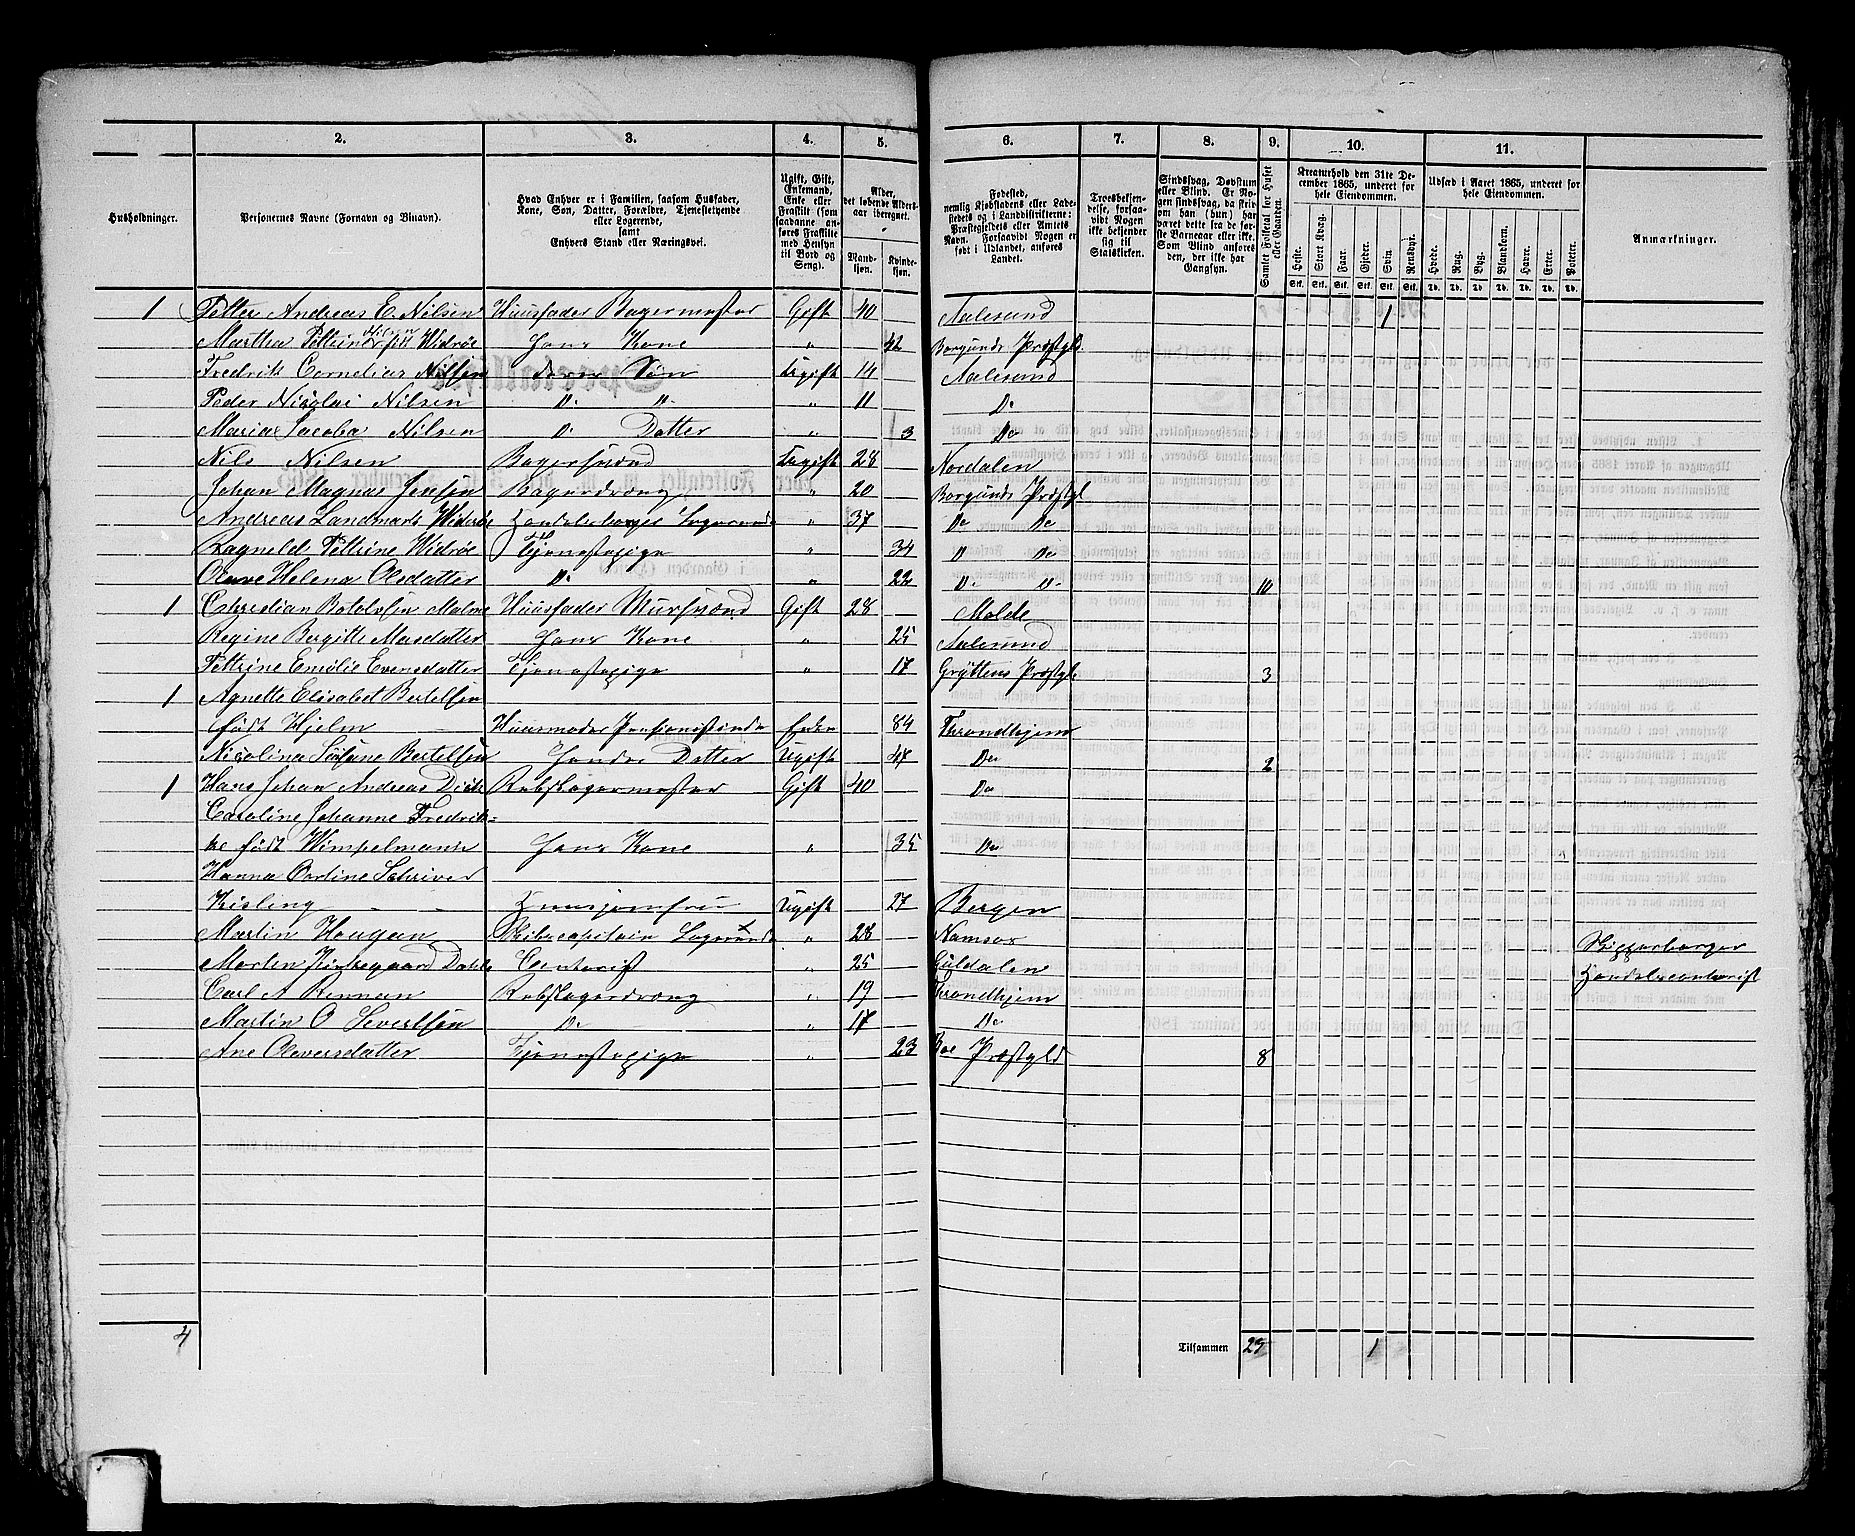 1. 2. 3. 4. 5. 6. 7. 8. 9. 10. 11.
Husholdninger.
Personernes Navne (Fornavn og Binavn).
Hvad Enhver er i Familien, saasom Husfader, Kone, Søn, Datter, Forældre, Tjenestetyende eller Logerende, samt Enhvers Stand eller Næringsvei.
Ugift, Gift, Enkemand, Enke eller Fraskilt (som saadanne anføres Fraskilte med Hensyn til Bord og Seng).
Alder, det løbende Alders-aar iberegnet.
Mandkjøn. Kvindekjøn.
Fødested, nemlig Kjøbstadens eller Ladestedets og i Landdistrikterne: Præstegjeldets eller Amtets Navn. Forsaavidt Nogen er født i Udlandet, anføres Landet.
Troesbekjendelse, forsaavidt Nogen ikke bekjender sig til Statskirken.
Sindssvag, Døvstum eller Blind. Er Nogen sindssvag, da skrives om han (hun) har været dette fra de første Barneaar eller ikke. Som Blind anføres den, der ikke har Gangsyn.
Samlet Folketal for Huset eller Gaarden.
Kreaturhold den 31te December 1865, underet for hele Eiendommen.
Heste. Stort Kvæg. Faar. Gjeder. Svin. Rensdyr.
Udsæd i Aaret 1865, underet for hele Eiendommen.
Hvede. Rug. Byg. Blankorn. Havre. Erter. Poteter.
Anmærkninger.
1 Petter Andreas E. Nilsen Huusfader Bagermester Gift 40 Aalesund 1
Martha Pettrine Nilsen født Widrøe Hans Kone " 42 Borgunds Præstgld.
Fredrik Cornelius Nilsen deres Søn Ugift 14 Aalesund
Peder Nicolai Nilsen Do Do " 11 Do
Maria Jacoba Nilsen Do Datter " 3 Do
Nils Nilsen Bagersvend Ugift 28 Nordalen
Johan Magnus Jensen Bagerdreng " 20 Borgunds Præstgl
Andreas Landmark Widerøe Handelsborger Logerende " 37 Do Do
Ragneld Pettrine Widrøe Tjenestepige " 34 Do Do
Olave Helena Olsdatter Do " 22 Do Do 10
1 Christian Botolvsen Malme Huusfader Muursvend Gift 28 Molde
Regine Bergitte Masdatter Hans Kone " 25 Aalesund
Pettrine Emilie Evensdatter Tjenestepige " 17 Gryttens Præstgl 3
1 Agnette Elisabet Bertelsen
født Hjelm Huusmoder Pensionistinde Enke 84 Throndhjem
Nicolina Susine Bertelsen Hendes Datter Ugift 47 Do 2
1 Hans Johan Andreas Dick Rebslagermester Gift 40 Do
Caroline Johanne Fredrik-
ke født Wimpelmann Hans Kone " 35 Do
Hanna Oertine Schriver
Kisling Huusjomfru Ugift 27 Bergen
Martin Hougan Skibscapitain Logerende " 28 Namsos Skipperborger
Morten Kirkegaard Dahl Contorist " 25 Guldalen Handelscontorist
Carl A Rennan Rebslagerdreng " 19 Throndhjem
Martin O Severtsen Do " 17 Do
Ane Oleversdatter Tjenestepige " 23 Boe Præstgld 8
4 Tilsammen 23 1